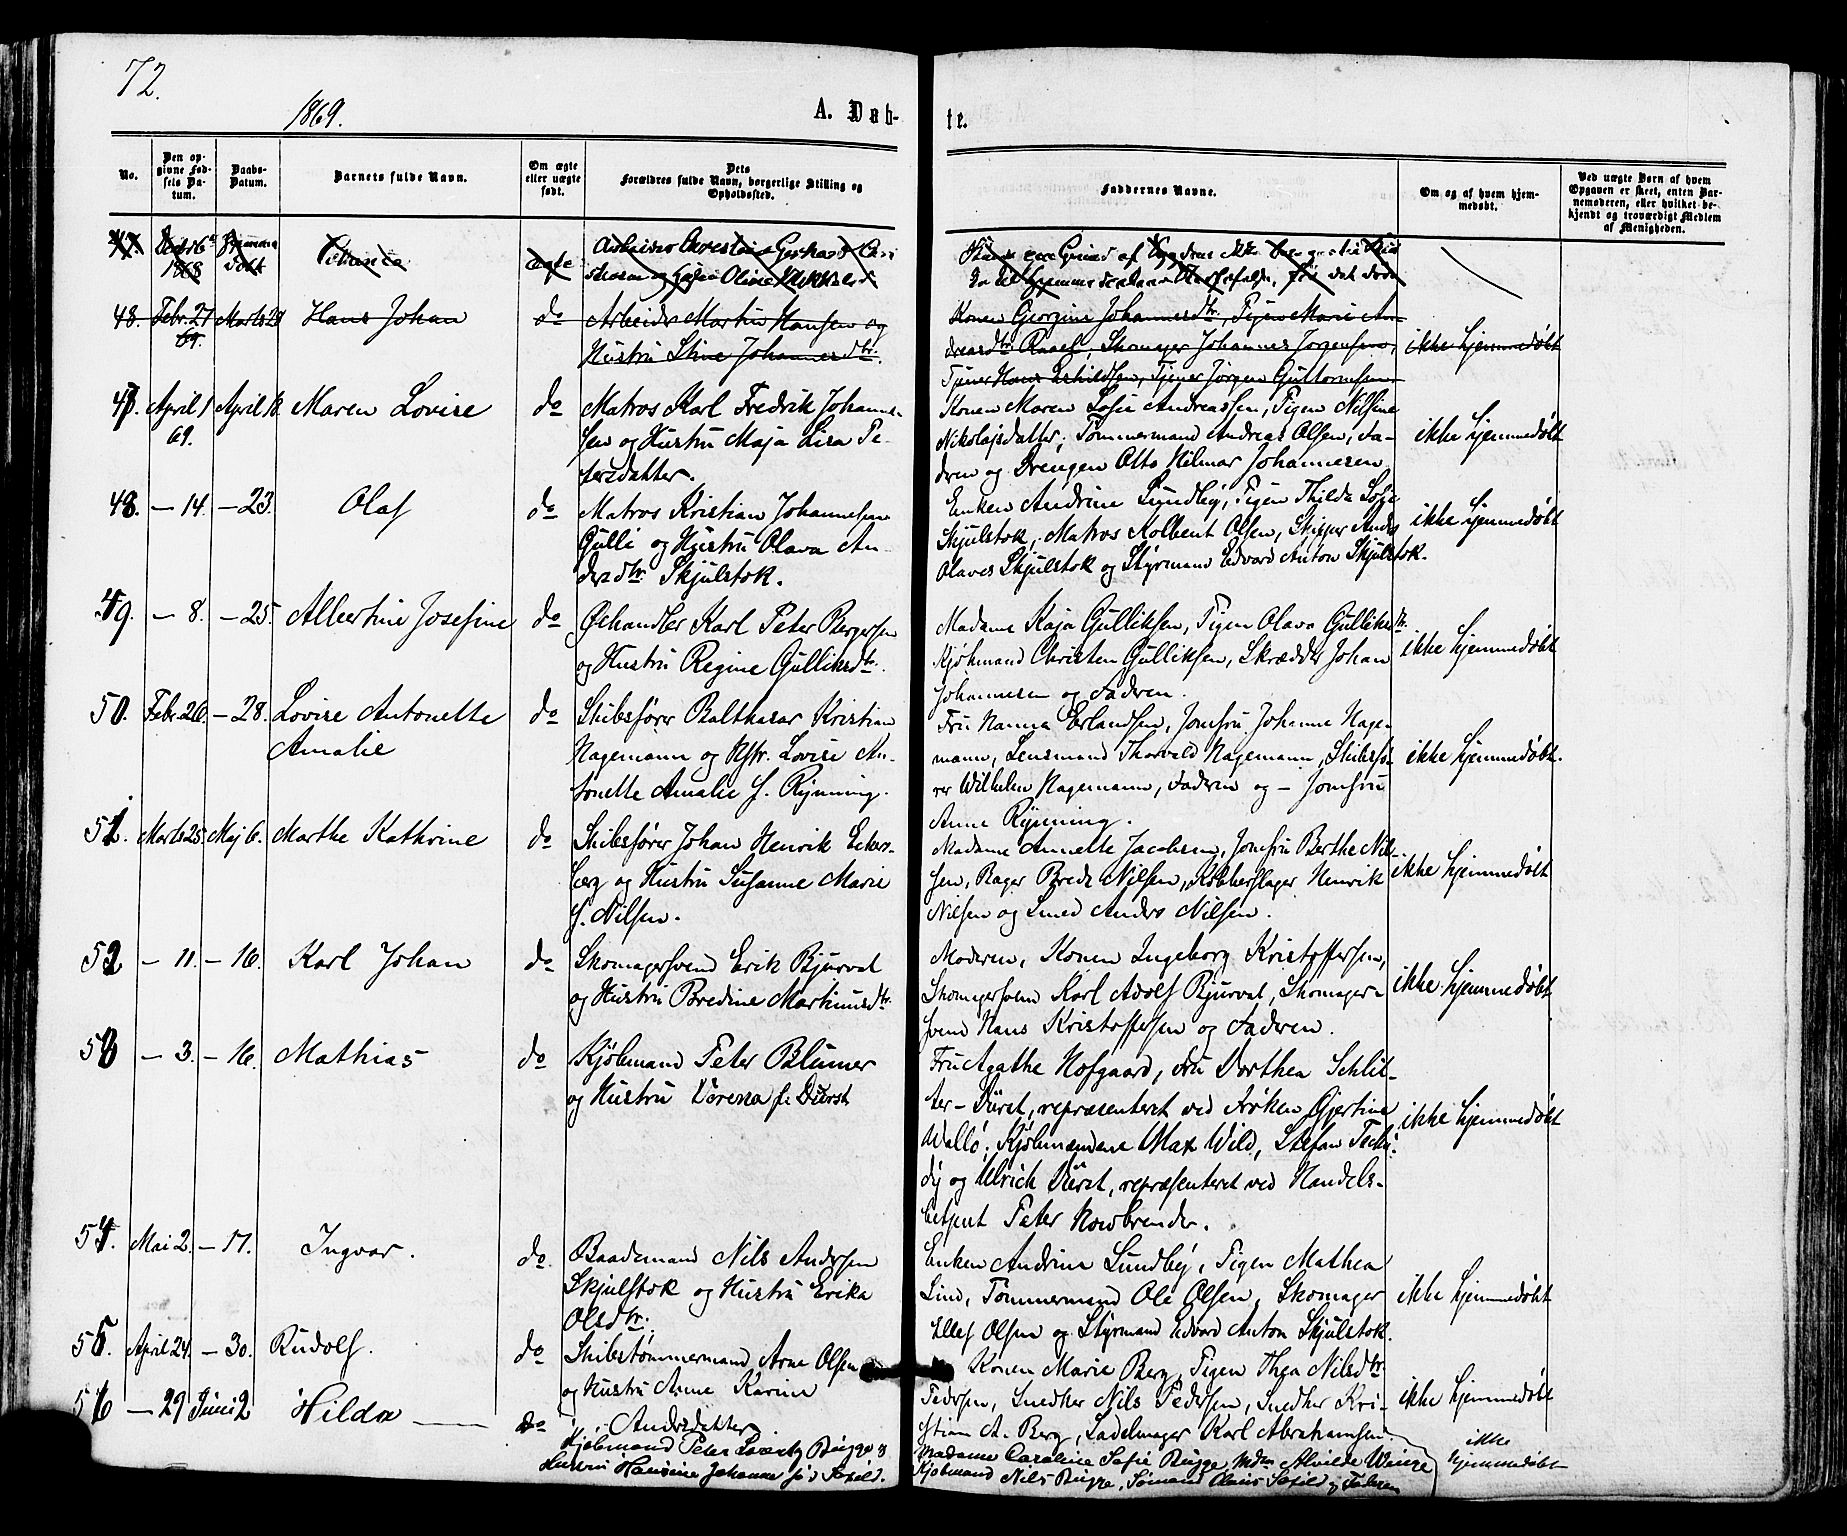 72.
1869.
A. Døb-
te.
No.
Den op-
givne Fød-
sels Da-
tum.
Daabs-
Datum.
Barnets fulde Navn.
Om ægte
eller uægte
født.
Dets
Forældres fulde Navn, borgerlige Stilling og
Opholdssted.
Faddernes Navne.
Om og af hvem hjem-
medøbt.
Ved uægte Børn af hvem
Opgaven er skeet, enten Bar-
nemoderen, eller hvilket be-
kjendt og troværdigt Medlem
af Menigheden.
1868
ægte
48. Febr. 27 Marts 29 Hans Johan do Arbeider Martin Hansen og
69.
Hustru Stine Johannesdtr.
Konen Georgine Johannesdtr, Pigen Marie An-
dreasdtr Raael, Skomager Johannes Jørgensen,
Tjener Hans Eskildsen, Tjener Jørgen Guttormsen.
ikke hjemmedøbt
47. April 1 April 18. Maren Lovise do Matros Karl Fredrik Johanne-
69.
sen og Hustru Maja Lisa Pe-
tersdatter.
Konen Maren Sofie Andreassen, Pigen Nilsine
Nikolajsdatter, Tømmermand Andreas Olsen, Fa-
dren og Drengen Otto Hilmar Johannesen
ikke hjemmedøbt
48. — 14. — 23. Olaf do Matros Kristian Johannesen
Gulli og Hustru Olava An-
dersdtr Skjulstok.
Enken Andrine Lundby, Pigen Thilda Sofie
Skjulstok, Matros Kolbent Olsen, Skipper Anders
Olaves Skjulstok og Styrmand Edvard Anton Skjulstok.
ikke hjemmedøbt
49. — 8. — 25. Albertine Josefine do Ølhandler Karl Peter Bergersen
og Hustru Regine Gulliksdtr.
Madame Kaja Gulliksen, Pigen Olava Gulliksdtr.
Kjøbmand Christen Gulliksen, Skrædder Johan
Johannesen og Fadren.
ikke hjemmedøbt
50. Febr. 26. — 28. Lovise Antonette do Skibsfører Balthasar Kristian
Amalie
Hagemann og Hstr. Lovise An-
tonette Amalie f. Rynning.
Fru Hanna Erlandsen, Jomfru Johanne Hage-
mann, Lensmand Thorvald Hagemann, Skibsfø-
rer Wilhelm Hagemann, Fadren og — Jomfru
Anne Rynning.
ikke hjemmedøbt.
51. Marts 25. Maj 6. Marthe Kathrine do Skibsfører Johan Henrik Eckers-
berg og Hustru Susanne Marie
f. Nilsen.
Madame Annette Jacobsen, Jomfru Berthe Nil-
sen, Bager Brede Nilsen, Kobberslager Henrik
Nilsen og Smed Anders Nilsen.
ikke hjemmedøbt
52 — 11. — 16. Karl Johan do Skomagersvend Erik Bjurval
og Hustru Bredine Martinusdtr.
Moderen, Konen Ingeborg Kristoffersen,
Skomagersvend Karl Adolf Bjurval, Skomager-
svend Hans Kristoffersen og Fadren.
ikke hjemmedøbt
53 — 3. — 16. Mathias do Kjøbmand Peter Blumer
og Hustru Verena f. Dürst
Fru Agathe Hofgaard, Fru Dorthea Schlit-
ter-Dürst, repræsenteret ved Frøken Gjertine
Wallø, Kjøbmændene Max Wild, Stefan Tschu-
dy og Ulrich Dürst, repræsenteret ved Handels-
betjent Peter Nordbrenden.
ikke hjemmedøbt
54. Mai 2. — 17. Ingvar. do. Baadsmand Nils Andersen
Skjulstok og Hustru Erika
Olsdtr.
Enken Andrina Lundby, Pigen Mathea
Lind, Tømmermand Ole Olsen, Skomager
Ellef Olsen og Styrmand Edvard Anton Skjulstok.
ikke hjemmedøbt
55. April 24. — 30. Rudolf. do Skibstømmermand Arne Olsen
og Hustru Anne Karine
Andersdatter
Konen Marie Berg, Pigen Thea Nilsdtr
Pedersen, Snedker Nils Pedersen, Snedker Kri-
stian A. Berg, Sadelmager Karl Abrahamsen.
ikke hjemmedøbt
56 — 29 Juni 2 Hilda do
Kjøbmand Peter Lorentz Bugge og
Hustru Hansine Johanne f. Sexild.
Madame Caroline Sofie Bugge, Mdm Alvilde Winge
Kjøbmand Nils Bugge, Sømand Claus Sexild og Fadren
ikke
hjemmedøbt